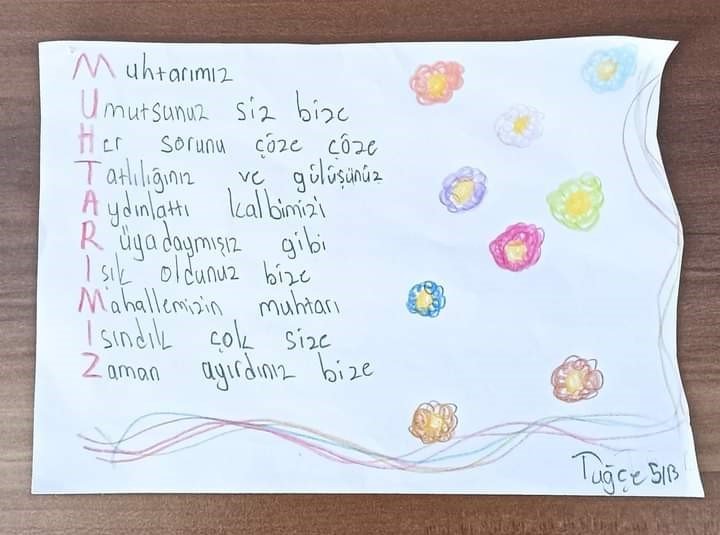 Muhtarımız
Umutsunuz siz bize
Her sorunu çöze çöze
Tatlılığınız ve gülüşünüz
Aydınlattı kalbimizi
Rüyadaymışız gibi
Işık oldunuz bize
Mahallemizin muhtarı
Isındık çok size
Zaman ayırdınız bize
Tuğçe 5/B